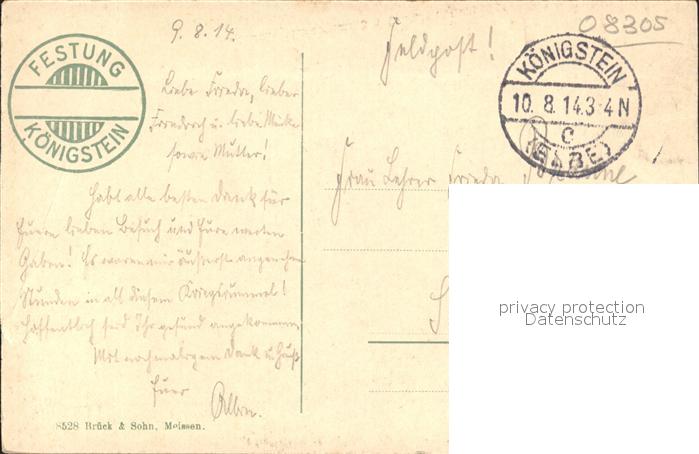 9. 8. 14.
Feldpost!
08305
FESTUNG
KÖNIGSTEIN
KÖNIGSTEIN
10. 8. 14. 3-4 N
c
(ELBE)
Liebe Frieda, lieber
Friedrich u. liebe Mieke
sowie Mutter!
Habt alle besten Dank für
Euern lieben Besuch und Eure werten
Gaben! Es waren mir äußerst angenehme
Stunden in all diesem Kriegsrummel!
Hoffentlich seid Ihr gesund angekommen.
Mit nochmaligem Dank u. Gruß
Euer
Frau Lehrer Frieda
privacy protection
Datenschutz
8528 Brück & Sohn, Meissen.